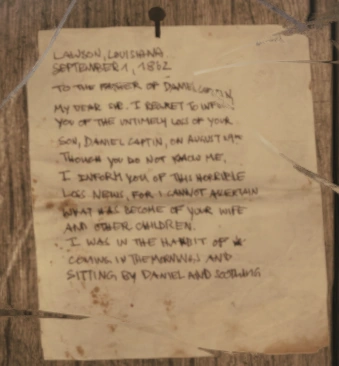 LAWSON, LOUISIANA
SEPTEMBER 1, 1862
TO THE FATHER OF DANIEL
MY DEAR SIR. I REGRET TO
YOU OF THE UNTIMELY LOSS OF YOUR
SON, DANIEL ON AUGUST
THOUGH YOU DO NOT KNOW ME,
I INFORM YOU OF THIS HORRIBLE
LOSS NEWS, FOR I CANNOT ASERTAIN
WHAT HAS BECOME OF YOUR WIFE
AND OTHER CHILDREN.
I WAS IN THE HABBIT OF
COMING IN THE MORNINGS AND
SITTING BY DANIEL AND SOOTHING